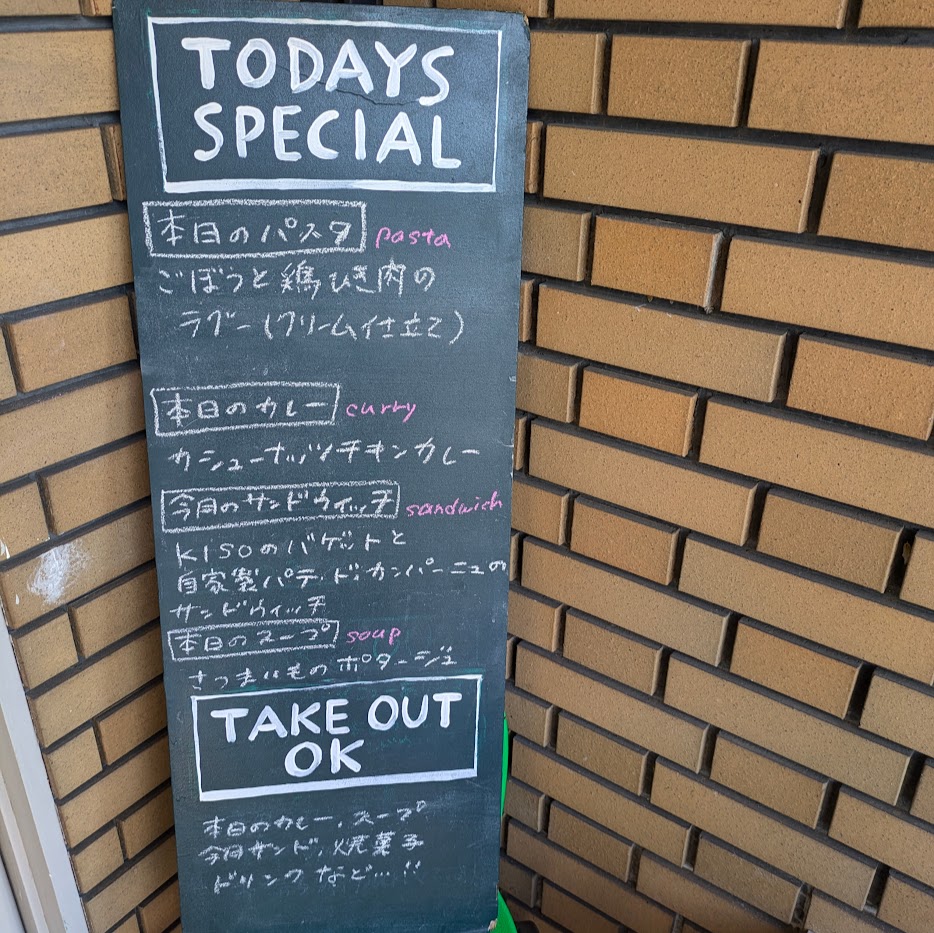 TODAYS
SPECIAL
本日のパスタ pasta
ごぼうと鶏ひき肉の
ラグー(クリーム仕立て)
本日のカレー curry
カシューナッツチキンカレー
今月のサンドウィッチ sandwich
KISOのバゲットと
自家製パテ・ド・カンパーニュの
サンドウィッチ
本日のスープ soup
さつまいものポタージュ
TAKE OUT
OK
本日のカレー、スープ
今月サンド、焼菓子
ドリンクなど...!!